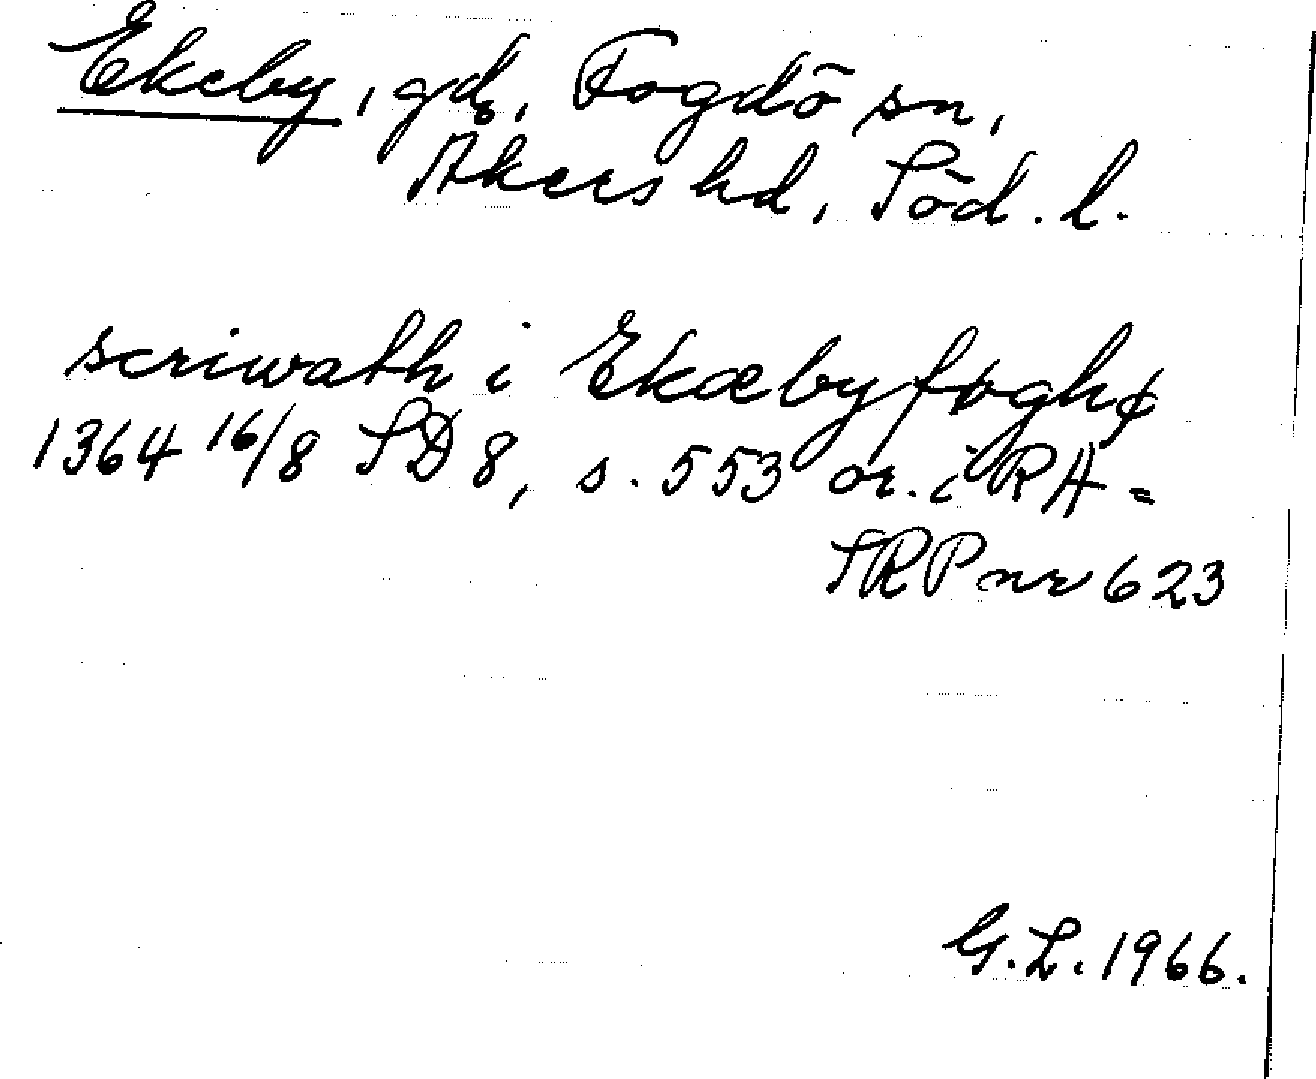 Ekeby, gd, Fogdö sn,
Åkers hd, Söd. l.
scriwath i Ekæby føghø
1364 16/8 SD 8, s. 553 or. i RA =
SRP nr 623
G.L. 1966.